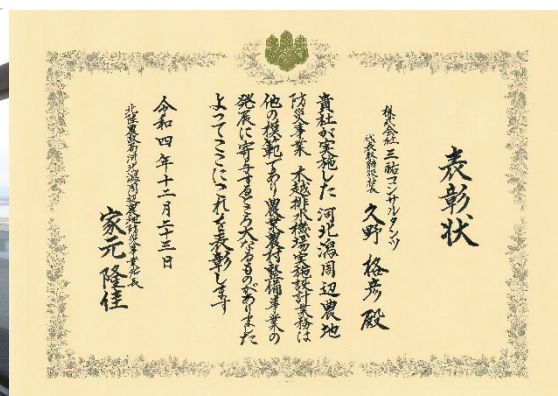 表彰状
株式会社 三祐コンサルタンツ
代表取締役社長 久野 格彦 殿
貴社が実施した 河北潟周辺農地
防災事業 木越排水機場実施設計業務は
他の模範であり農業農村整備事業の
発展に寄与するところ大なるものがありました
よってここにこれを表彰します
令和四年十二月二十三日
北陸農政局河北潟周辺農地防災事業所長
家元 隆佳